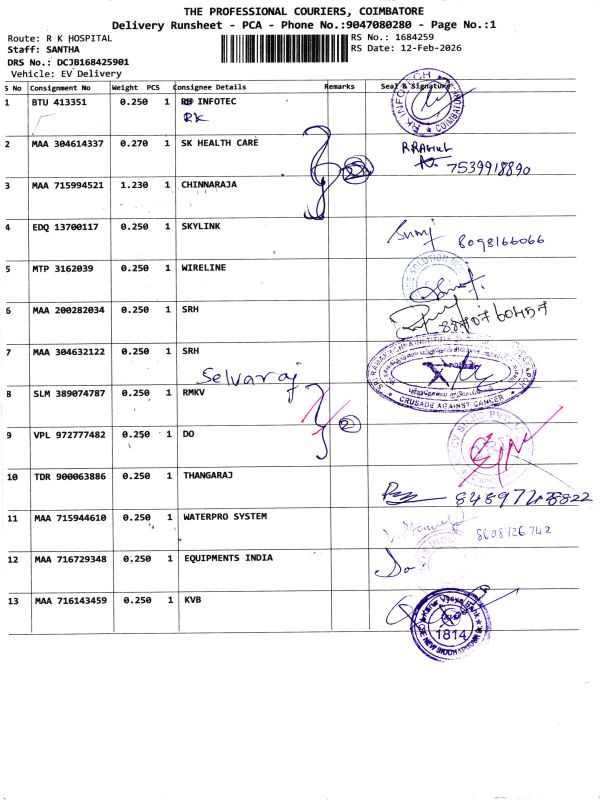 THE PROFESSIONAL COURIERS, COIMBATORE
Delivery Runsheet - PCA - Phone No.:9047080280 - Page No.:1
Route: R K HOSPITAL
RS No.: 1684259
Staff: SANTHA
RS Date: 12-Feb-2026
DRS No.: DCJB168425901
Vehicle: EV Delivery
S No Consignment No Weight PCS Consignee Details Remarks Seal & Signature
1 BTU 413351 0.250 1 RK INFOTEC
RK
RK INFOTECH COIMBATORE
2 MAA 304614337 0.270 1 SK HEALTH CARE
RRAHUL
7539918890
3 MAA 715994521 1.230 1 CHINNARAJA
4 EDQ 13700117 0.250 1 SKYLINK
8098166066
5 MTP 3162039 0.250 1 WIRELINE
6 MAA 200282034 0.250 1 SRH
7 MAA 304632122 0.250 1 SRH
CRUSADE AGAINST CANCER
Selvaraj
8 SLM 389074787 0.250 1 RMKV
2
9 VPL 972777482 0.250 1 DO
10 TDR 900063886 0.250 1 THANGARAJ
11 MAA 715944610 0.250 1 WATERPRO SYSTEM
8698726742
12 MAA 716729348 0.250 1 EQUIPMENTS INDIA
Do
13 MAA 716143459 0.250 1 KVB
1814